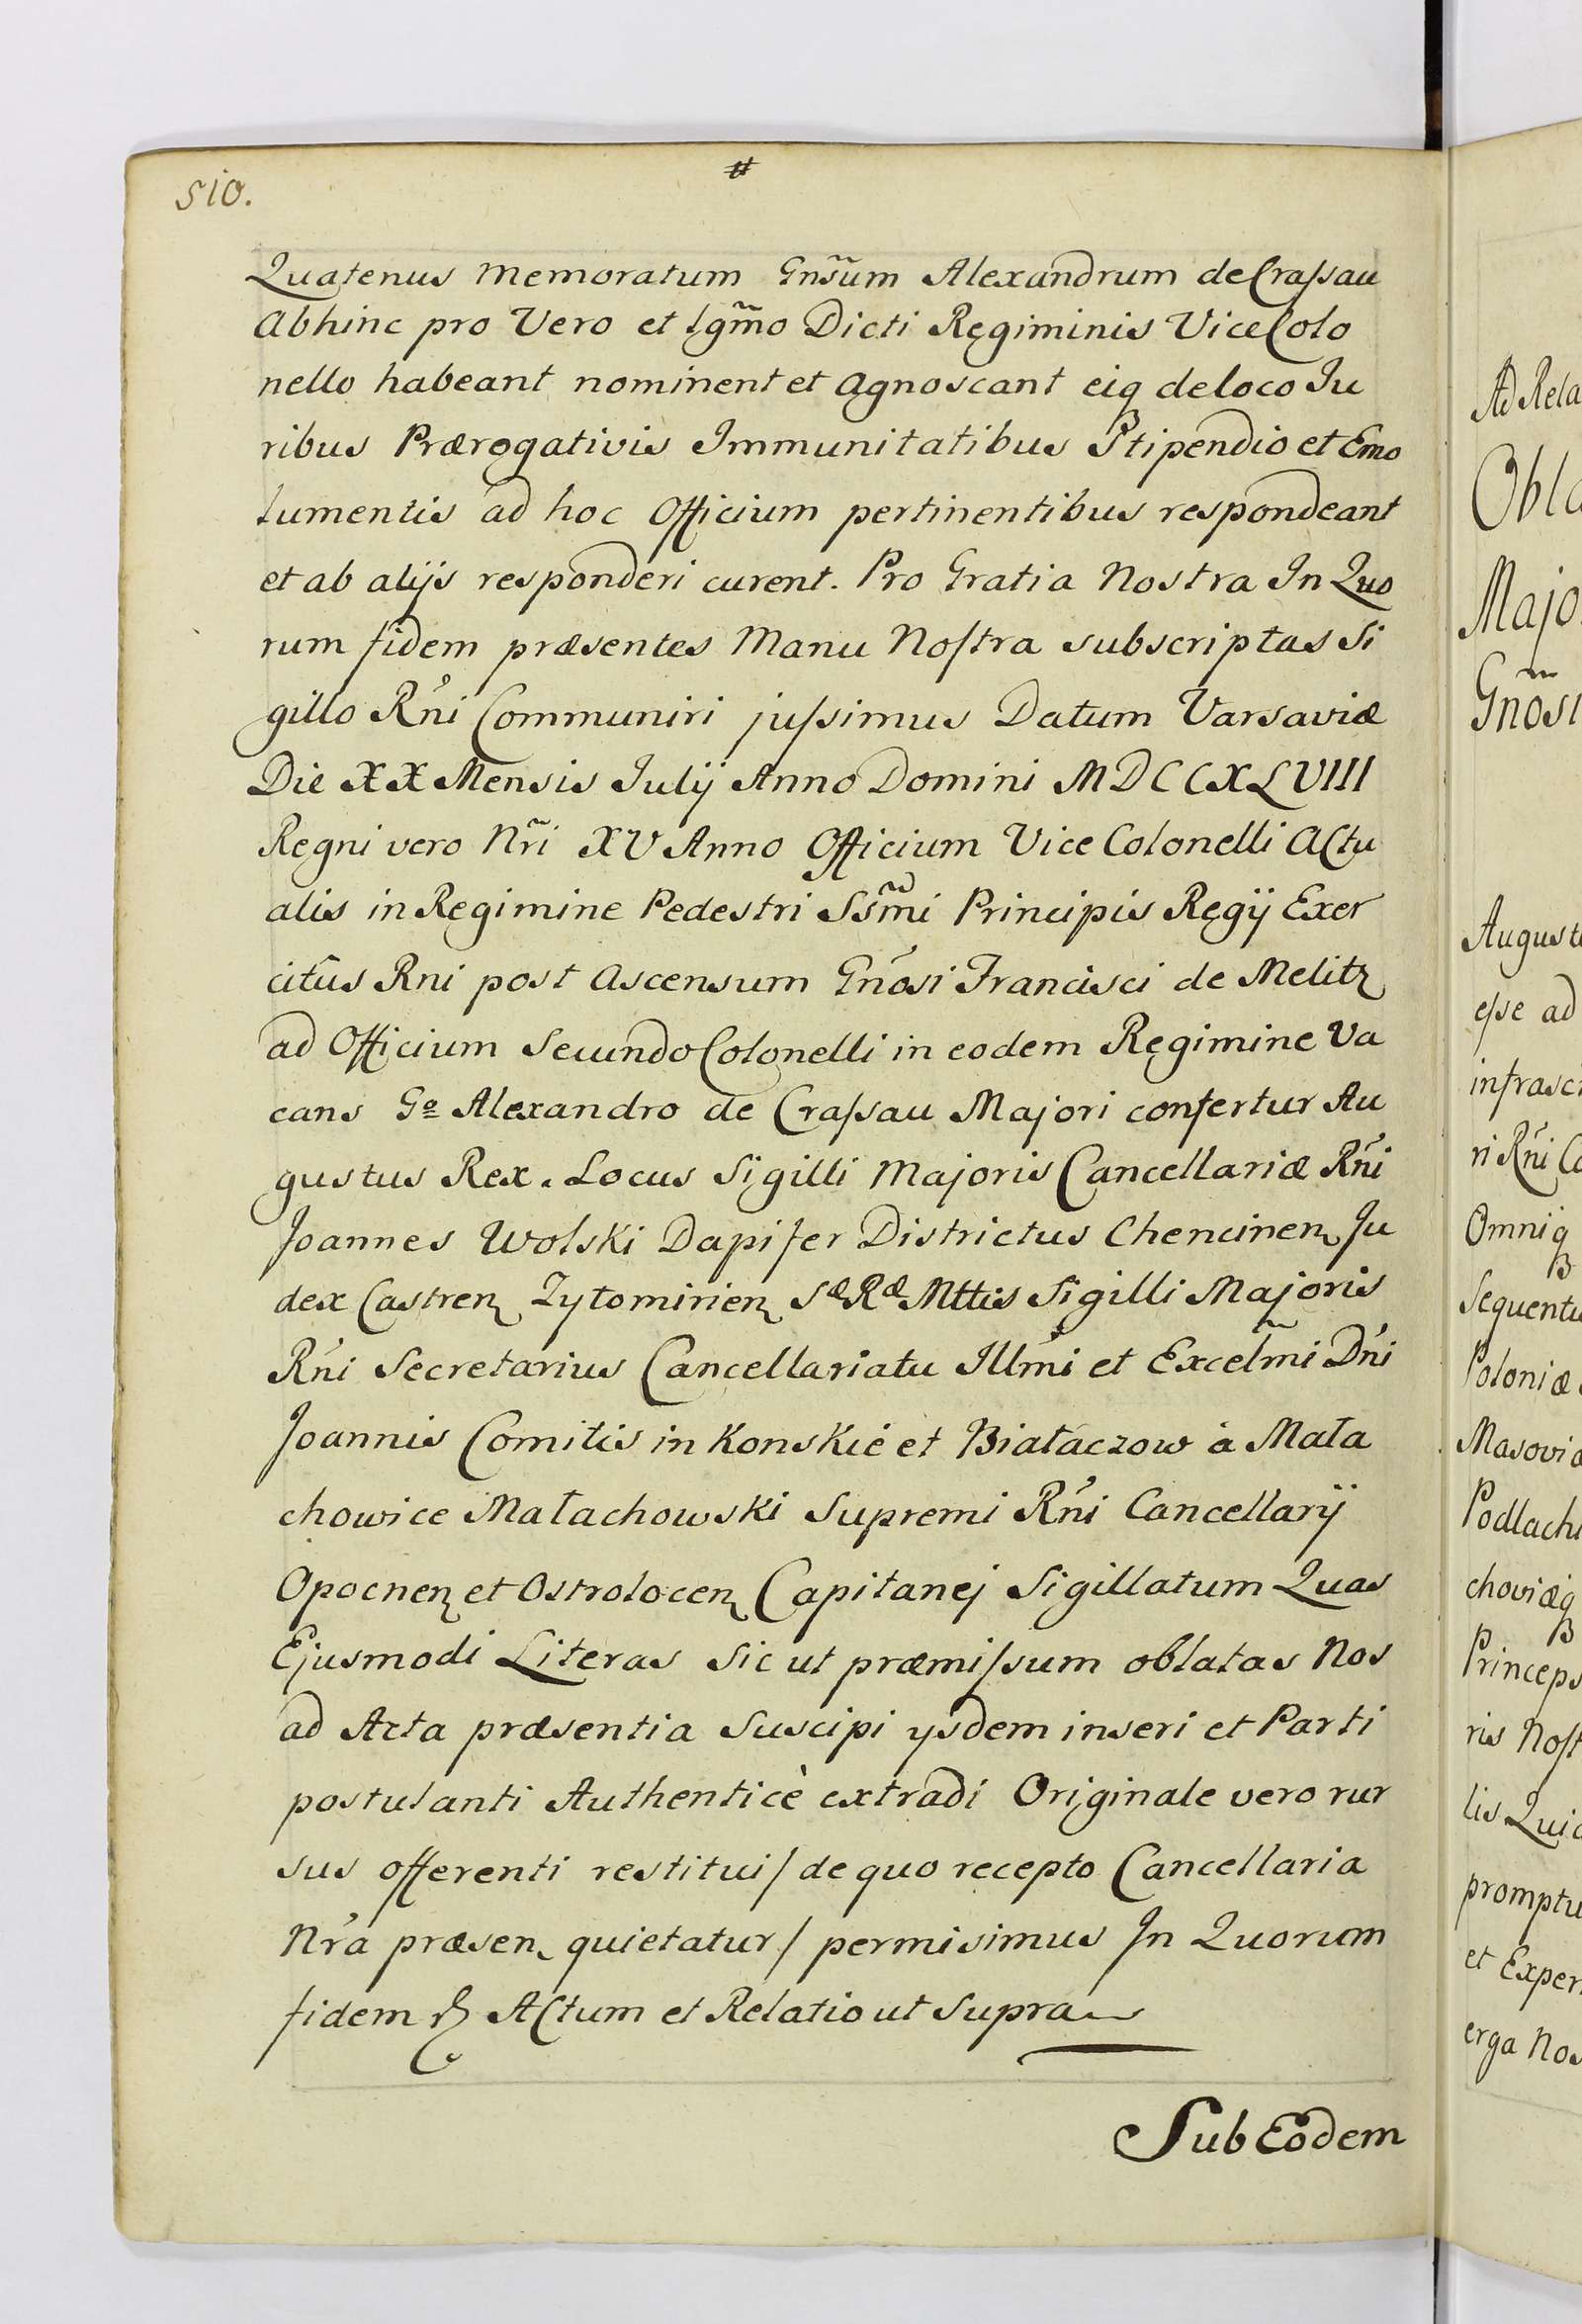 510.
#
Quatenus memoratum Gnsũm Alexandrum de Craſsau
Abhinc pro Vero et lgm̃o Dicti Regiminis Vice Colo
nello habeant nominent et agnoscant eiq de loco Ju
ribus Prærogativis Immunitatibus Stipendio et Emo
lumentis ad hoc Officium pertinentibus respondeant
et ab alijs responderi curent. Pro Gratia Nostra In Quo
rum fidem præsentes Manu Noſtra subscriptas Si
gillo Rn̉i Communiri juſsimus Datum Varsaviæ
Die XX Mensis Julij Anno Domini MDCCXLVIII
Regni vero Nr̃i XV Anno Officium Vice Colonelli Actu
alis in Regimine Pedestri Ssm̃i Principis Regij Exer
citûs Rni post ascensum Gnósi Francisci de Melitz
ad Officium Secundo Colonelli in eodem Regimine Va
cans Go Alexandro de Craſsau Majori confertur Au
gustus Rex. Locus Sigilli Majoris Cancellariæ Rn̉i
Joannes Wolski Dapifer Districtus Chencinen Ju
dex Castren Zytomirien Sæ Ræ Mttis Sigilli Majoris
Rn̉i Secretarius Cancellariatu Illm̉i et Excelm̃i Dn̉i
Joannis Comitis in Konskie et Białaczow à Mała
chowice Małachowski Supremi Rn̉i Cancellarij
Opocnen et Ostrolocen Capitanej Sigillatum Quas
Ejusmodi Literas Sic ut præmiſsum oblatas Nos
ad Acta præsentia Suscipi ysdem inseri et Parti
postulanti Authenticè extradi Originale vero rur
sus offerenti restitui / de quo recepto Cancellaria
Nr̉a præsen quietatur / permisimus In Quorum
fidem Actum et Relatio ut Supra
Sub Eodem
Ad Rela
Obla
Majo
Gnõsi
August
eſse ad
infrasc
ri Rn̉i Ca
Omniq
Sequentu
Poloniæ
Masovia
Podlach
choviæq
Princeps
ris Noſt
lis Qui
promptu
et Exper
erga Nos